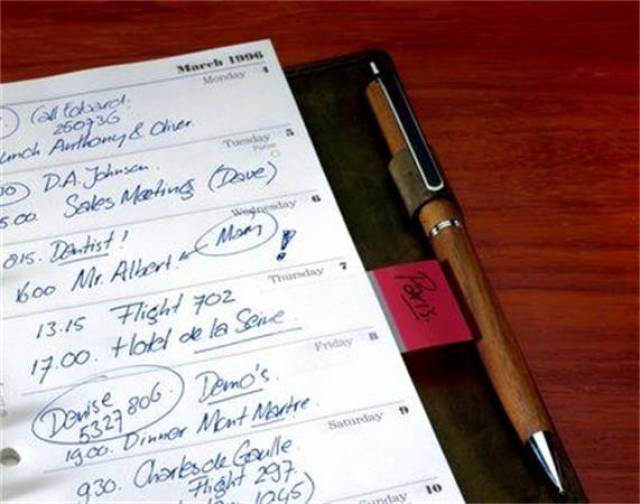 March 1996
Monday 4
Call Edward.
250736
Lunch Anthony & Oliver
Tuesday 5
D.A. Johnson.
5.00 Sales Meeting (Dave)
Wednesday 6
815. Dentist!
1600 Mr. Albert Mary !
Thursday 7
13.15 Flight 702
17.00. Hotel de la Seine.
Paris.
Friday 8
Denise 5327806 Demo's
1900. Dinner Mont Martre.
Saturday 9
930. Charles de Gaulle.
Flight 297.
10